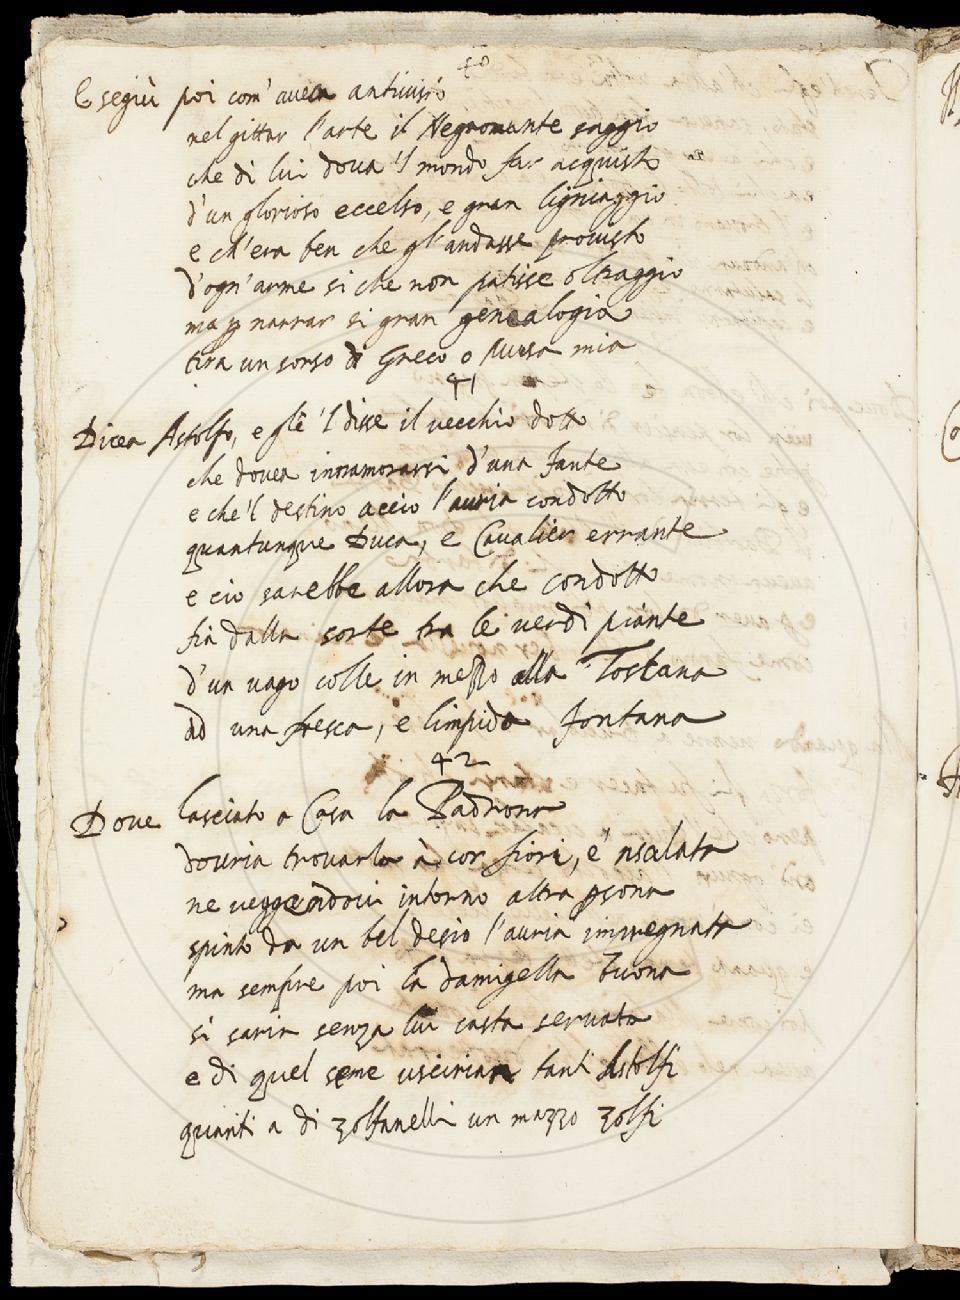 40
E seguì poi com' avea antivisto
nel gittar l'arte il Negromante saggio
che di lui dovea 'l mondo far acquisto
d'un glorioso eccelso, e gran ligniaggio
e ch'era ben che gl'andasse provisto
d'ogn'arme si che non patisse oltraggio
ma p narrar si gran genealogia
tira un sorso di Greco o Musa mia
41
Dicea Astolfo, e glè 'l disse il vecchio dotto
che dovea innamorarsi d'una fante
e che 'l destino acciò l'auria condotto
quantunque Duca, e Cavalier errante
e ciò sarebbe allora che condotto
fia dalla sorte tra le verdi piante
d'un vago colle in mezzo alla Toskana
ad una fresca, e limpida fontana
42
Dove lasciato a Casa la Padrona
douria trovarla à cor fiori, e nsalata
ne veggendovi intorno altra psona
spinto da un bel desio l'auria impregnata
ma sempre poi la damigella buona
si saria senza lui casta servata
e di quel seme uscirian tanti Astolfi
quanti a di zolfanelli un mazzo zolfi